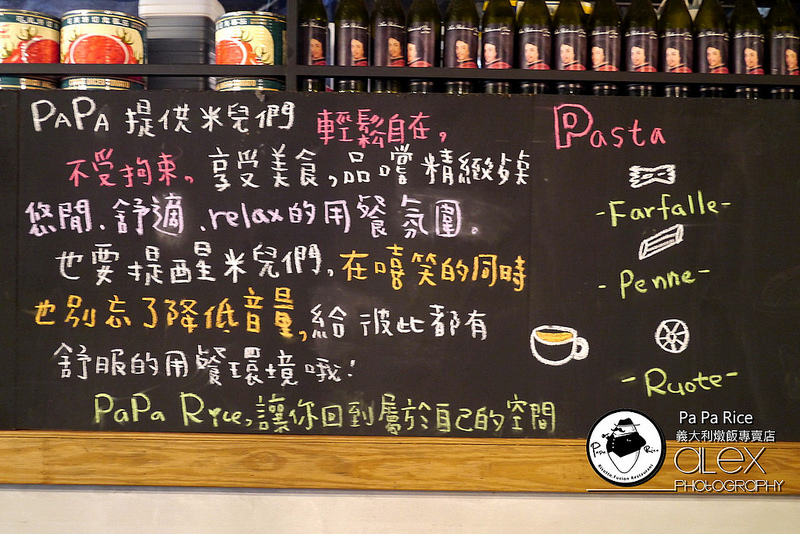 PAPA 提供米兒們 輕鬆自在,
不受拘束,享受美食,品嚐精緻餐桌
悠閒、舒適、relax的用餐氛圍。
也要提醒米兒們,在嘻笑的同時
也別忘了降低音量,給彼此都有
舒服的用餐環境哦!
PaPa Rice,讓你回到屬於自己的空間
Pasta
-Farfalle-
-Penne-
-Ruote-
PaPa Rice
Risotto Fusion Restaurant
Pa Pa Rice
義大利燉飯專賣店
ALEX
PHOTOGRAPHY